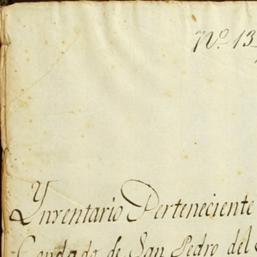 Nº 13
Ynventario Perteneciente
Condado de San Pedro del